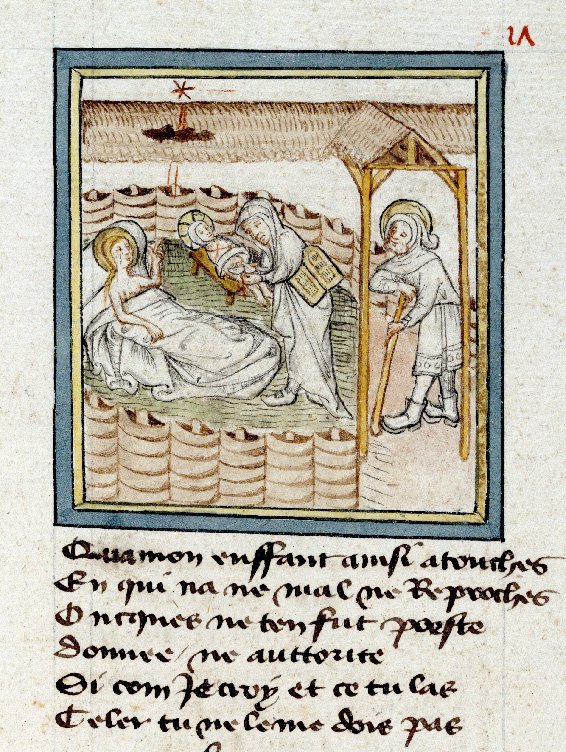 Quamon enffant ainsi atouches
En qui na ne mal ne Reproches
Oncques ne ten fut poeste
donnee / ne auttorite
Si com Je croy et ce tu las
Celer tu ne le me dois pas